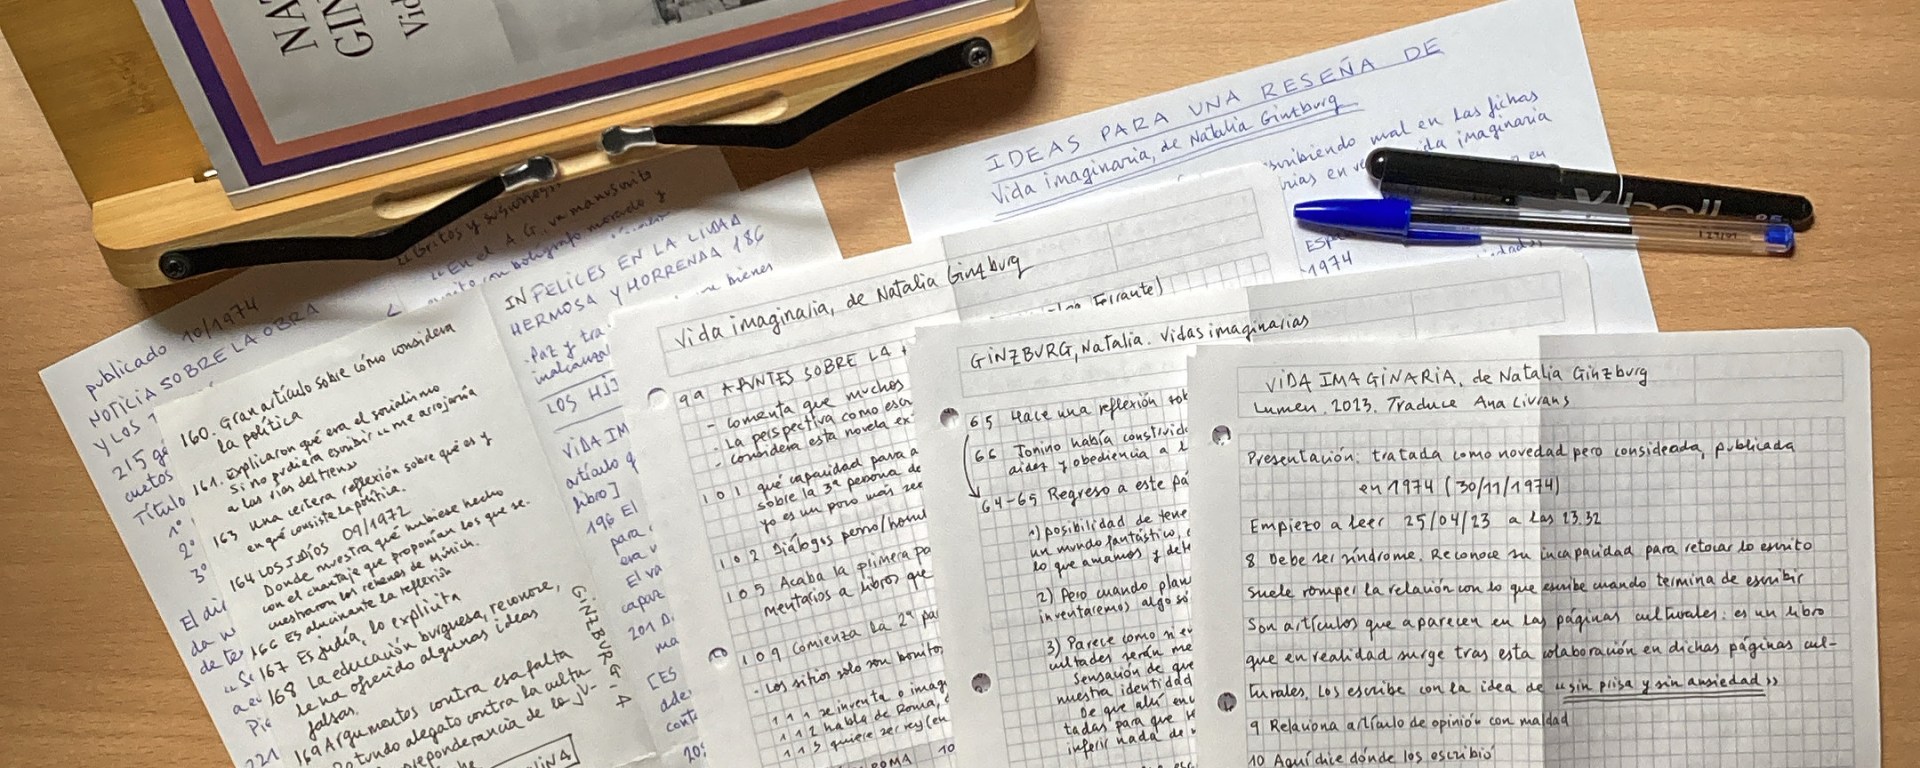 NA
GIN
Vid
IDEAS PARA UNA RESEÑA DE
Vida imaginaria, de Natalia Gintburg
scribiendo mal en las fichas
rias en ve ida imaginaria
en
1974
dades
"Gritos y susurros
"En el A.G. un manuscrito
bolígrafo morado y
INFELICES EN LA CIUDAD
HERMOSA Y HORRENDA 186
bienes
Paz y tra
inalcanzal
LOS HIJ
VIDA IM
artículo q
libro]
196 El
para
era v
El va
capaz
201 D
ma
[ES
adde
conte
20
publicado 10/1974
NOTICIA SOBRE LA OBRA
Y LOS
215 ga
cuetos
Título
1º
2º
3º
El di
da w
de te
221
160. Gran artículo sobre cómo considera
la política
161. Explicaron qué era el socialismo
Si no pudiera escribir "me arrojaría
a las vías del tren»
163 una certera reflexión sobre qué es y
en qué consiste la política.
164 LOS JUDÍOS 09/1972
Donde muestra qué hubiese hecho
con el chantaje que proponían los que se-
cuestraron los rehenes de Múnich.
166 Es alucinante la reflexión
167 Es judía, lo explicita
168 La educación burguesa, reconoce,
le ha ofrecido algunas ideas
falsas.
169 Argumentos contra esa falta
Rotundo alegato contra la cultu
preponderancia de la
GINZBURG-4
Vida imaginaria, de Natalia Ginzburg
Ferrante)
99 APUNTES SOBRE LA
- comenta que muchos
- La perspectiva como escr
- considera esta novela ex
101 qué capacidad para a
sobre la 3ª persona de
yo es un poco más
102 Diálogos perro/homb
105 Acaba la primera pa
mentarios a libros que
109 Comienza la 2ª pa
- Los sitios solo son bonitos
111 se inventa o imag
112 habla de Roma,
113 quiere ser rey (en
ROMA 10
GINZBURG, Natalia. Vidas imaginarias
65 Hace una reflexión sob
66 Tonino había construid
aidez y obediencia a l
64-65 Regreso a este pá
1) posibilidad de tene
un mundo fantástico,
lo que amamos y dete
2) Pero cuando plan
inventaremos algo so
3) Parece como si ev
cultades serán me
Sensación de que
nuestra identidad
De que ahí env
tadas para que
inferir nada de
VIDA IMAGINARIA, de Natalia Ginzburg
Lumen. 2023. Traduce Ana Ciurans
Presentación: tratada como novedad pero considerada, publicada
en 1974 (30/11/1974)
Empiezo a leer 25/04/23 a las 13.32
8 Debe ser síndrome. Reconoce su incapacidad para retocar lo escrito
Suele romper la relación con lo que escribe cuando termina de escribir
Son artículos que aparecen en las páginas culturales: es un libro
que en realidad surge tras esta colaboración en dichas páginas cul-
turales, Los escribe con la idea de «sin prisa y sin ansiedad»
9 Relaciona artículo de opinión con maldad
10 Aquí dice dónde los escribió